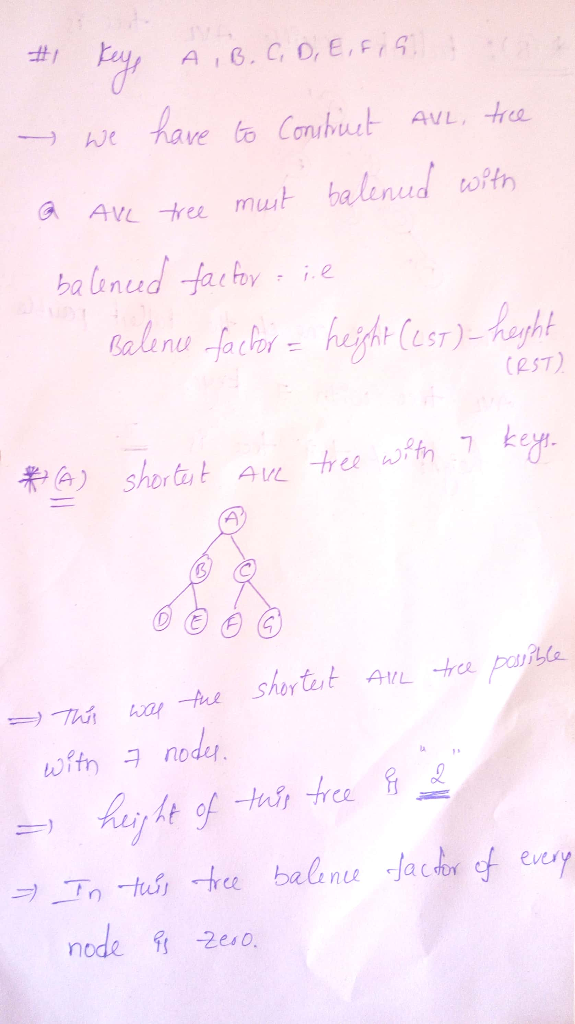 #1 Keys A, B, C, D, E, F, G
→ we have to Construct AVL, tree
@ AVL tree must balenced with
balenced factor = i.e
Balence factor = height (LST) - height
(RST)
(A) shortest AVL tree with 7 keys.
A
B C
D E F G
⇒ This was the shortest AVL tree possible
with 7 nodes.
⇒ height of this tree is "2"
⇒ In this tree balence factor of every
node is zero.